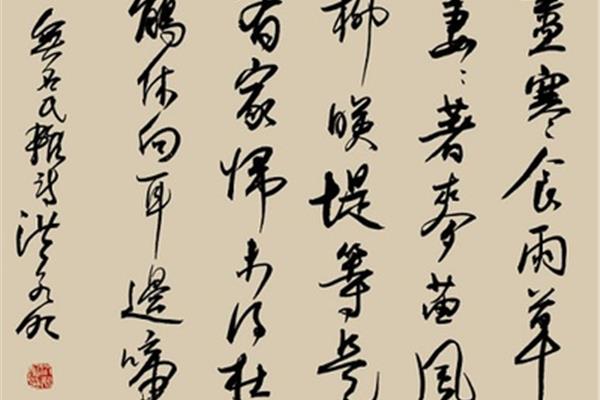 盡寒食雨草
萋萋著麥苗風
柳映堤等是
有家歸未得杜
鵑休向耳邊啼
無名氏雜詩洪